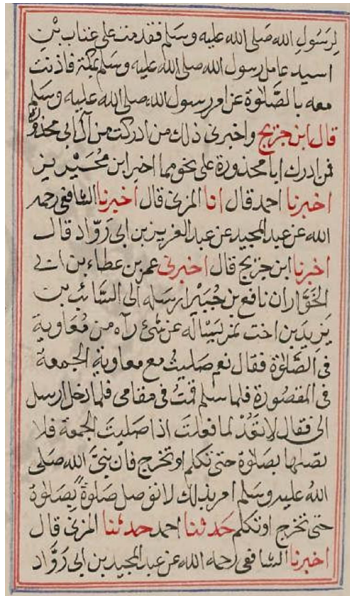 لرسول الله صلى الله عليه وسلم فقدمت على عتاب بن
اسيد عامل رسول الله صلى الله عليه وسلم بمكة فاذنت
معه بالصلوة عن امر رسول الله صلى الله عليه وسلم
قال ابن جريج واخبرني ذلك من ادركت من آل ابي محذورة
ممن ادرك ابا محذورة على نحو مما اخبر ابن محيريز
اخبرنا احمد قال انا المزني قال اخبرنا الشافعي رحمه
الله عن عبد المجيد عن عبد العزيز بن ابي روّاد قال
اخبرنا ابن جريج قال اخبرني عمر بن عطاء بن ابي
الخوّار ان نافع بن جبير ارسله الى السائب بن
يزيد بن اخت نمر يساله عن شئ رآه من معاوية
في الصلوة فقال نعم صليت مع معاوية الجمعة
في المقصورة فلما سلم قمت في مقامي فلما دخل ارسل
الي فقال لا تعد لما فعلت اذا صليت الجمعة فلا
تصلها بصلوة حتى تكلم او تخرج فان نبي الله صلى
الله عليه وسلم امر بذلك لا توصل صلوة بصلوة
حتى تخرج او تكلم حدثنا احمد حدثنا المزني قال
اخبرنا الشافعي رحمه الله عن عبد المجيد بن ابي روّاد